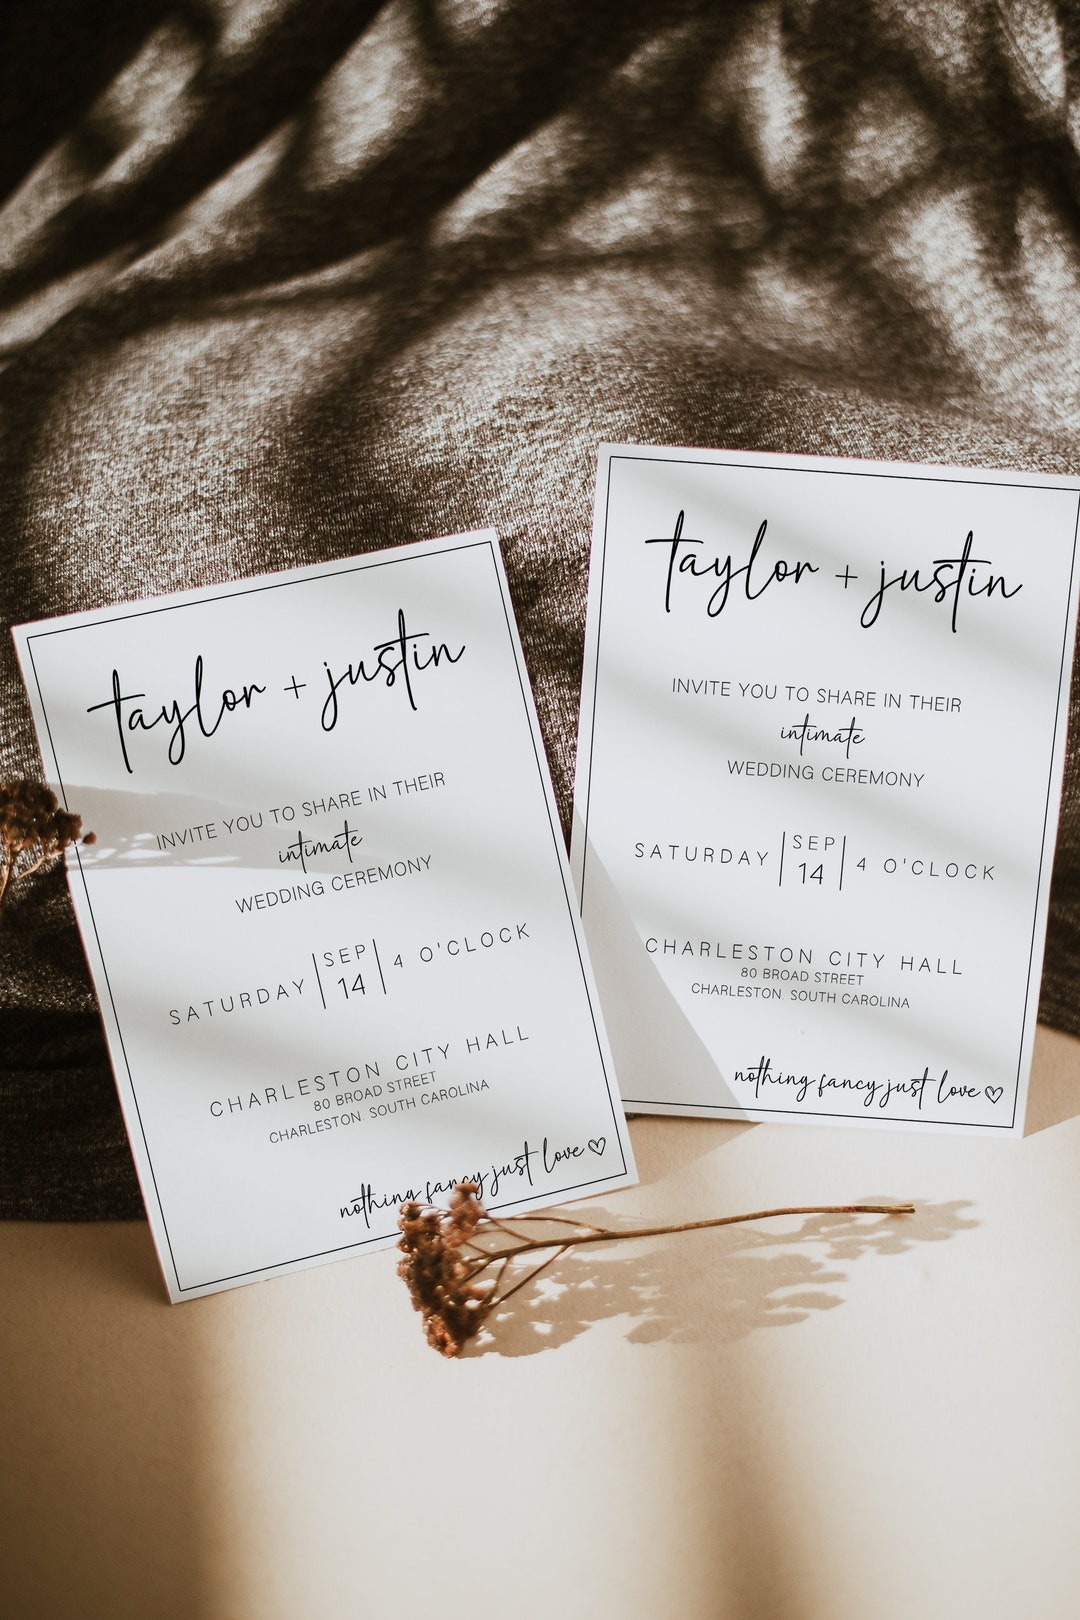 taylor + justin
INVITE YOU TO SHARE IN THEIR
intimate
WEDDING CEREMONY
SATURDAY
SEP
14
4 O'CLOCK
CHARLESTON CITY HALL
80 BROAD STREET
CHARLESTON, SOUTH CAROLINA
nothing fancy just love
taylor + justin
INVITE YOU TO SHARE IN THEIR
intimate
WEDDING CEREMONY
SATURDAY
SEP
14
4 O'CLOCK
CHARLESTON CITY HALL
80 BROAD STREET
CHARLESTON, SOUTH CAROLINA
nothing fancy just love